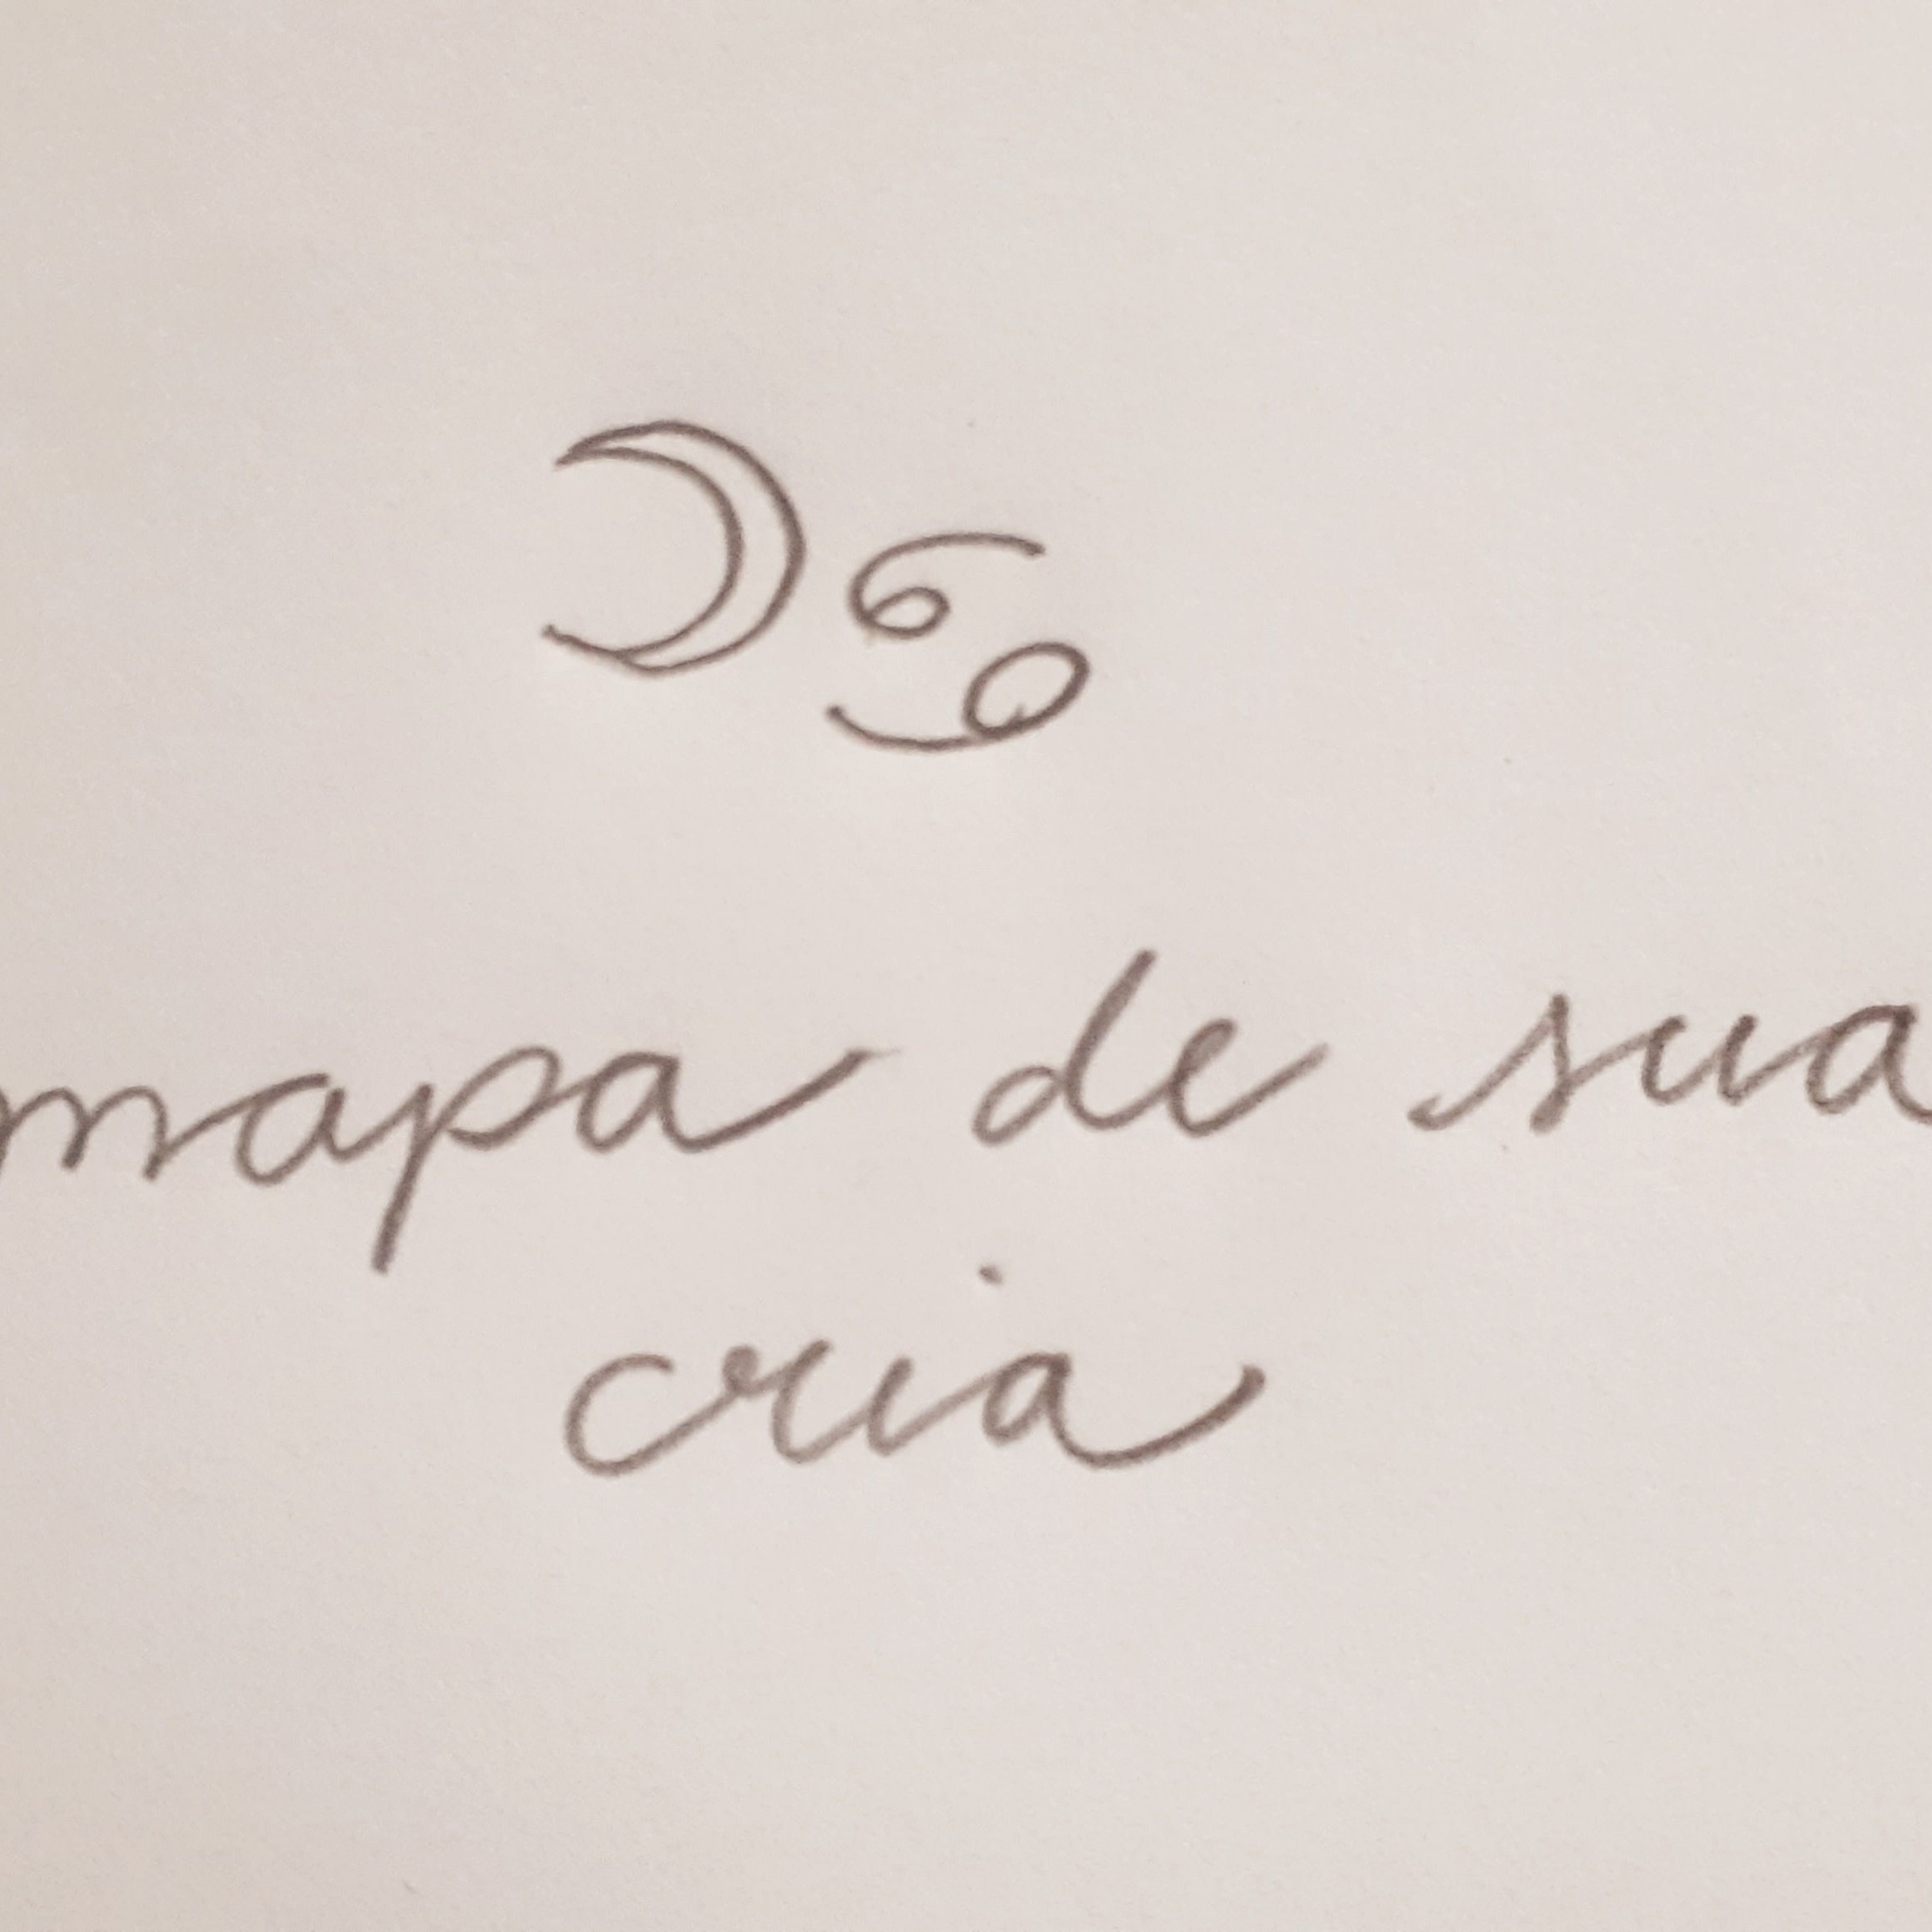 ☽♋
mapa de sua
cria